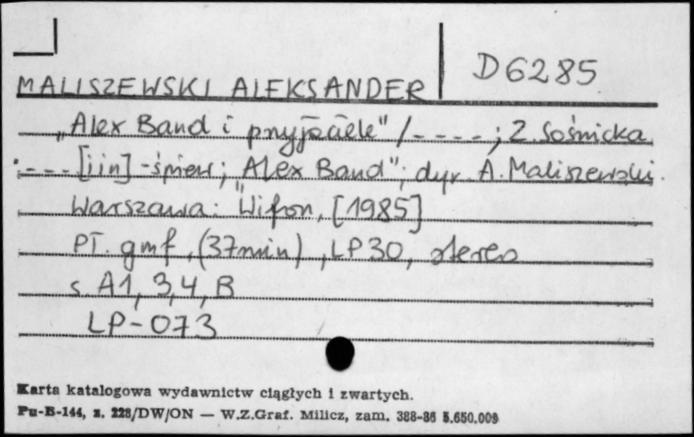 D6285
MALISZEWSKI ALEKSANDER
„Alex Band i przyjaciele" / - - - - ; Z. Sośnicka
- - - [iin] - śpiew; „Alex Band"; dyr. A. Maliszewski.
Warszawa: Wifon, [1985]
PŁ. gmf, (37min), LP30, stereo
s A1, 3, 4, B
LP-073
Karta katalogowa wydawnictw ciągłych i zwartych.
Pu-B-144, z. 228/DW/ON — W.Z.Graf. Milicz, zam. 388-86 5.650.000